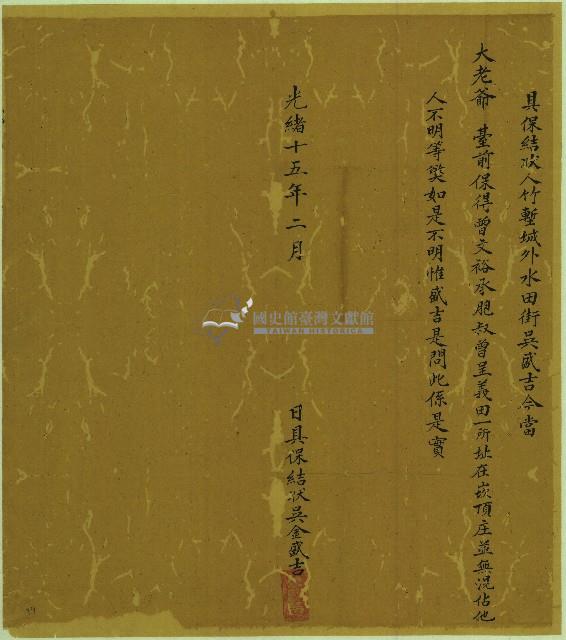 具保結狀人竹塹城外水田街吳盛吉今當
大老爺 臺前保得曾文裕承胞叔曾呈義田一所址在崁頂庄並無混佔他
人不明等獘如是不明惟盛吉是問此係是實
光緒十五年二月 日具保結狀吳金盛吉
國史館臺灣文獻館
TAIWAN HISTORICA